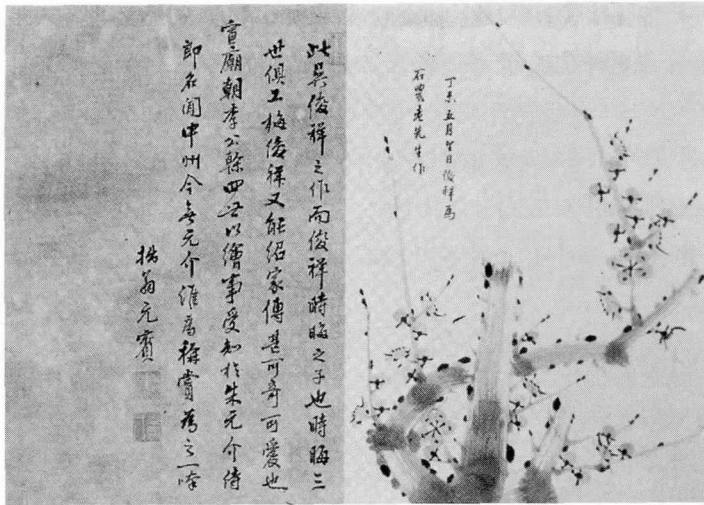 丁未五月日俊祥爲
石農老先生作
此吳俊祥之作而俊祥時晦之子也時晦三
世俱工梅俊祥又能紹家傳甚可奇可愛也
宣廟朝李公幹四世以繪事受知於朱元介侍
郎名聞中州今無元介誰爲稱賞爲之一
翁元賓